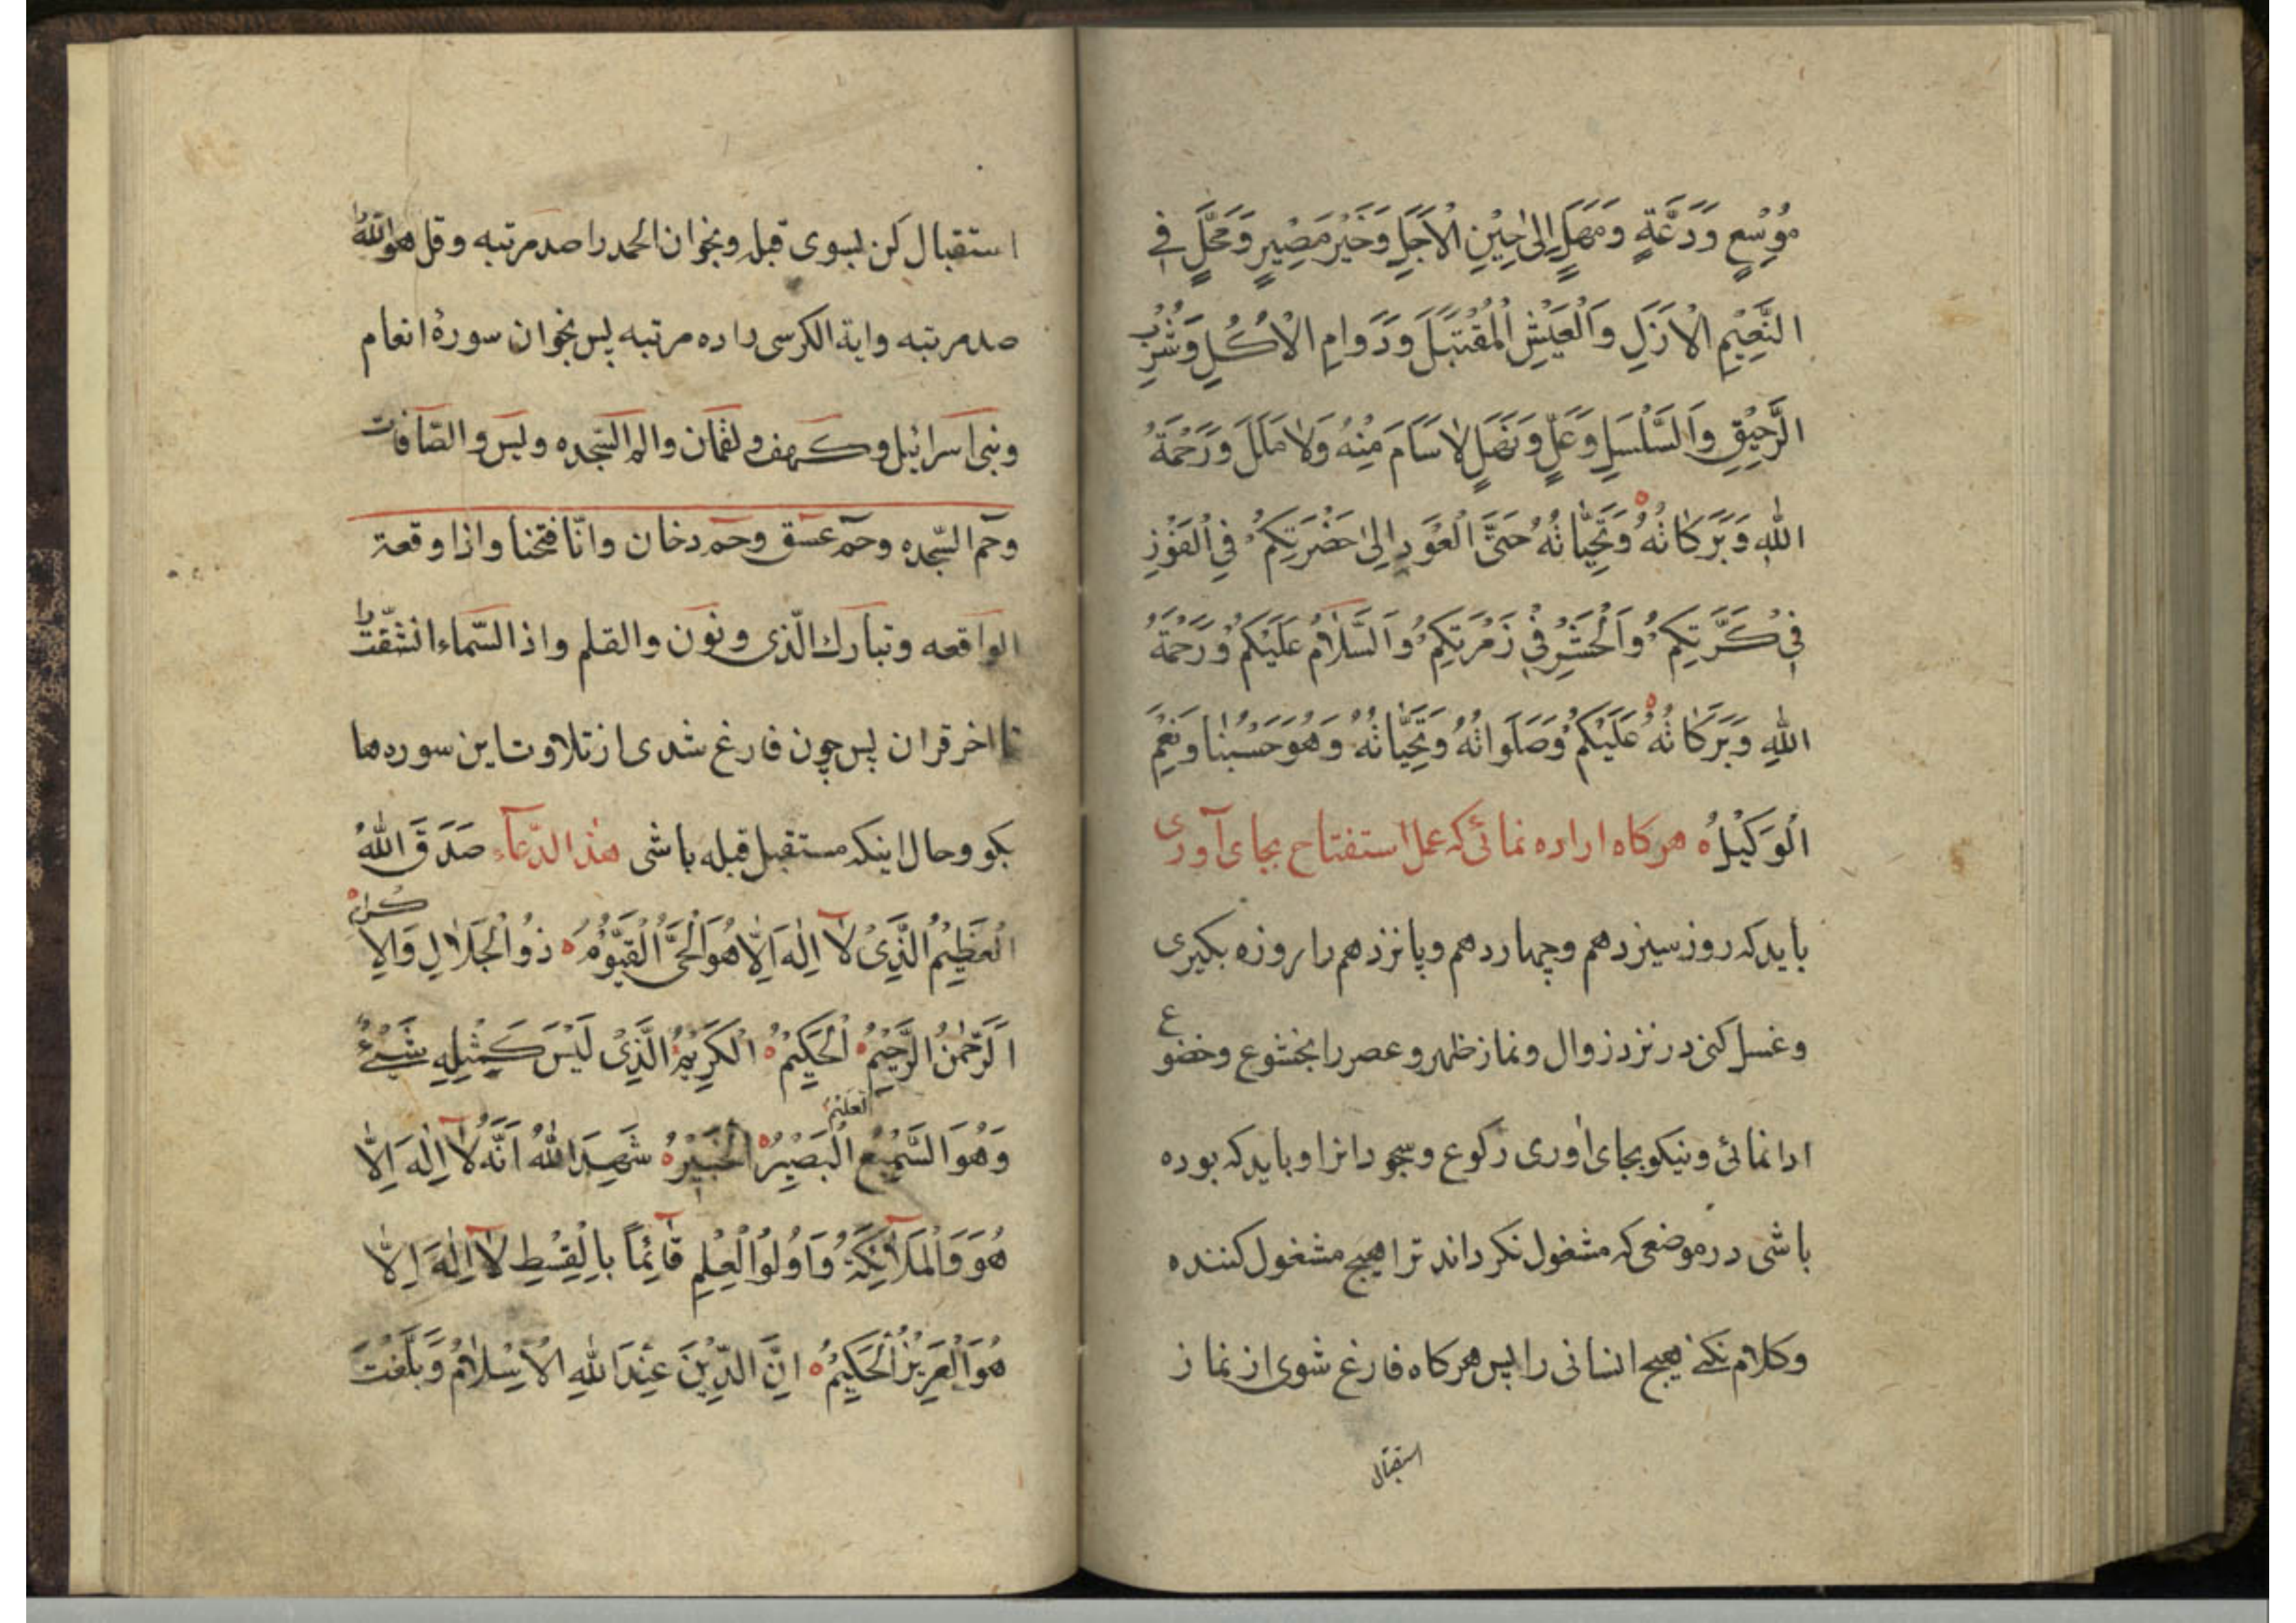 مُوْسِعٍ وَدَعَةٍ وَمَهَلٍ اِلىٰ حِيْنِ الْاَجَلِ وَخَيْرَ مَصِيْرٍ وَمَحَلٍّ فِي
النَّعِيْمِ الْاَزَلِ وَالْعَيْشِ الْمُقْتَبَلَ وَدَوَامِ الْاُكُلِ وَشُرْبِ
الرَّحِيْقِ وَالسَّلْسَلِ وَعَلٍّ وَنَهَلٍ لا سَاَمَ مِنْهُ وَلَا مَلَلَ وَرَحْمَةُ
اللهِ وَبَرَكَاتُهُ وَتَحِيَّاتُهُ حَتَّى الْعَوْدِ اِلىٰ حَضْرَتِكُمْ فِي الْفَوْزِ
فِي كَرَّتِكُمْ وَالْحَشْرِ فِي زُمْرَتِكُمْ وَالسَّلَامُ عَلَيْكُمْ وَرَحْمَةُ
اللهِ وَبَرَكَاتُهُ عَلَيْكُمْ وَصَلَوَاتُهُ وَتَحِيَّاتُهُ وَهُوَ حَسْبُنَا وَنِعْمَ
الْوَكِيْلُ هركاه اراده نمائى كه عمل استفتاح بجاى آورى
بايد كه روز سيزدهم وچهاردهم وپانزدهم را روزه بكيرى
وغسل كنى در نزد زوال ونماز ظهر وعصر را بخشوع وخضوع
ادا نمائى ونيكو بجاى اورى ركوع وسجود انرا وبايد كه بوده
باشى در موضعى كه مشغول نكرداند ترا هيچ مشغول كننده
وكلام نكنى بهيچ انسانى را پس هركاه فارغ شوى از نماز
استقبال
استقبال كن بسوى قبله وبخوان الحمد را صد مرتبه وقل هو الله را
صد مرتبه واية الكرسى را ده مرتبه پس بخوان سورهٔ انعام
وبنى اسرائيل وكهف ولقمان والم السّجده ويس والصّافات
وحم السّجده وحم عسق وحم دخان وانّا فتحنا واذا وقعة
الواقعه وتبارك الّذى ونون والقلم واذ السّماء انشقّت را
تا اخر قران پس چون فارغ شدى از تلاوت اين سوره ها
بكو وحال اينكه مستقبل قبله باشى هذا الدّعاء صَدَقَ اللهُ
الْعَظِيْمُ الَّذِيْ لآ اِلٰهَ اِلَّا هُوَ الْحَيُّ الْقَيُّوْمُ ذُو الْجَلَالِ وَالْاِكرام
اَلرَّحْمٰنُ الرَّحِيْمُ الْحَكِيْمُ الْكَرِيْمُ الَّذِيْ لَيْسَ كَمِثْلِهِ شَيْءٌ
وَهُوَ السَّمِيْعُ العليم الْبَصِيْرُ الْخَبِيْرُ شَهِدَ اللهُ اَنَّهُ لآ اِلٰهَ اِلَّا
هُوَ وَالْمَلآئِكَةُ وَاُولُوا الْعِلْمِ قَآئِمًا بِالْقِسْطِ لآ اِلٰهَ اِلَّا
هُوَ الْعَزِيْزُ الْحَكِيْمُ اِنَّ الدِّيْنَ عِنْدَ اللهِ الْاِسْلَامُ وَبَلَّغَتْ